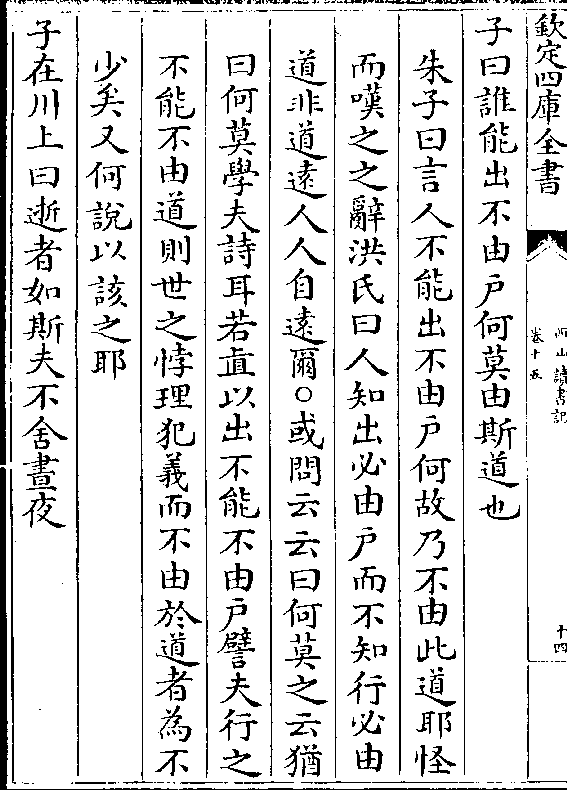 欽定四庫全書
西山讀書記
卷十五
十四
子曰誰能出不由戶何莫由斯道也
朱子曰言人不能出不由戶何故乃不由此道耶怪
而嘆之之辭洪氏曰人知出必由戶而不知行必由
道非道遠人人自遠爾○或問云云曰何莫之云猶
曰何莫學夫詩耳若直以出不能不由戶譬夫行之
不能不由道則世之悖理犯義而不由於道者為不
少矣又何說以該之耶
子在川上曰逝者如斯夫不舍晝夜